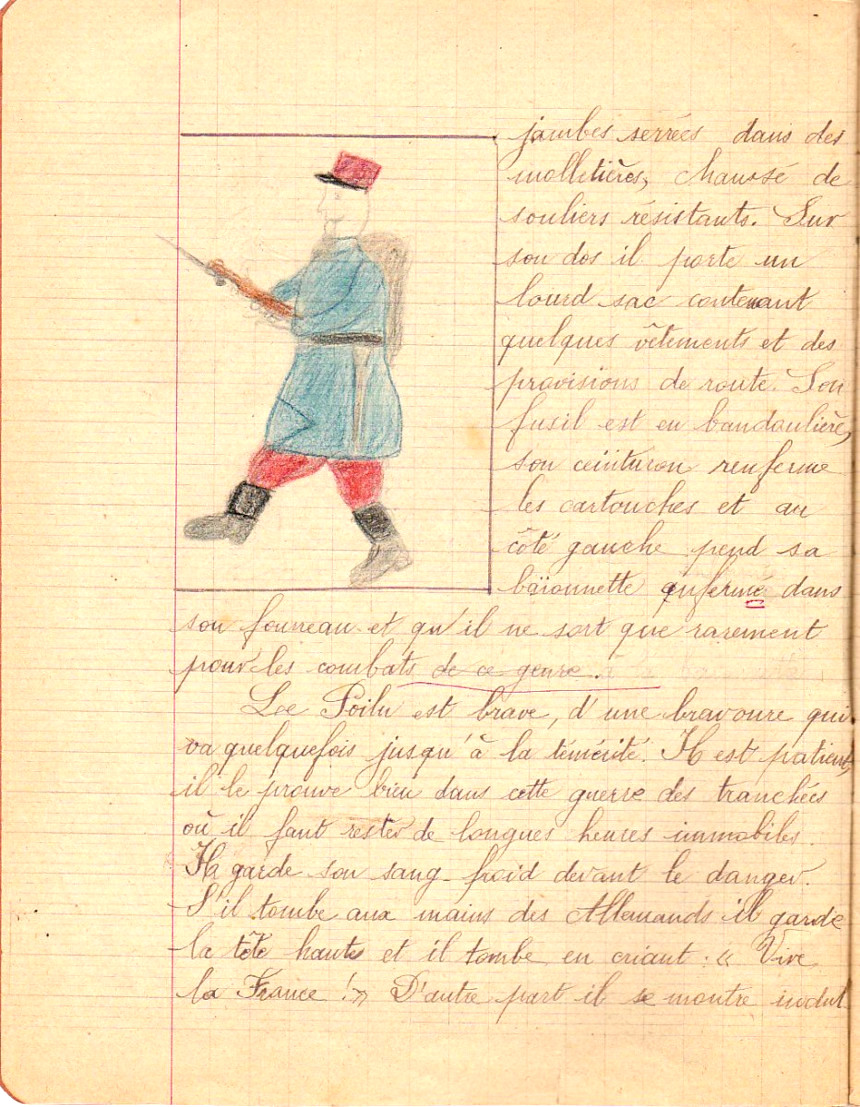 jambes serrées dans des
molletières, chaussé de
souliers résistants. Sur
son dos il porte un
lourd sac contenant
quelques vêtements et des
provisions de route. Son
fusil est en bandoulière,
son ceinturon renferme
les cartouches et au
côté gauche pend sa
baïonnette enfermé dans
son fourreau et qu'il ne sort que rarement
pour les combats de ce genre.
Le Poilu est brave, d'une bravoure qui
va quelquefois jusqu'à la témérité. Il est patient,
il le prouve bien dans cette guerre des tranchées
où il faut rester de longues heures immobiles.
Il garde son sang-froid devant le danger.
S'il tombe aux mains des Allemands il garde
la tête haute et il tombe en criant : « Vive
la France ! » D'autre part il se montre indul